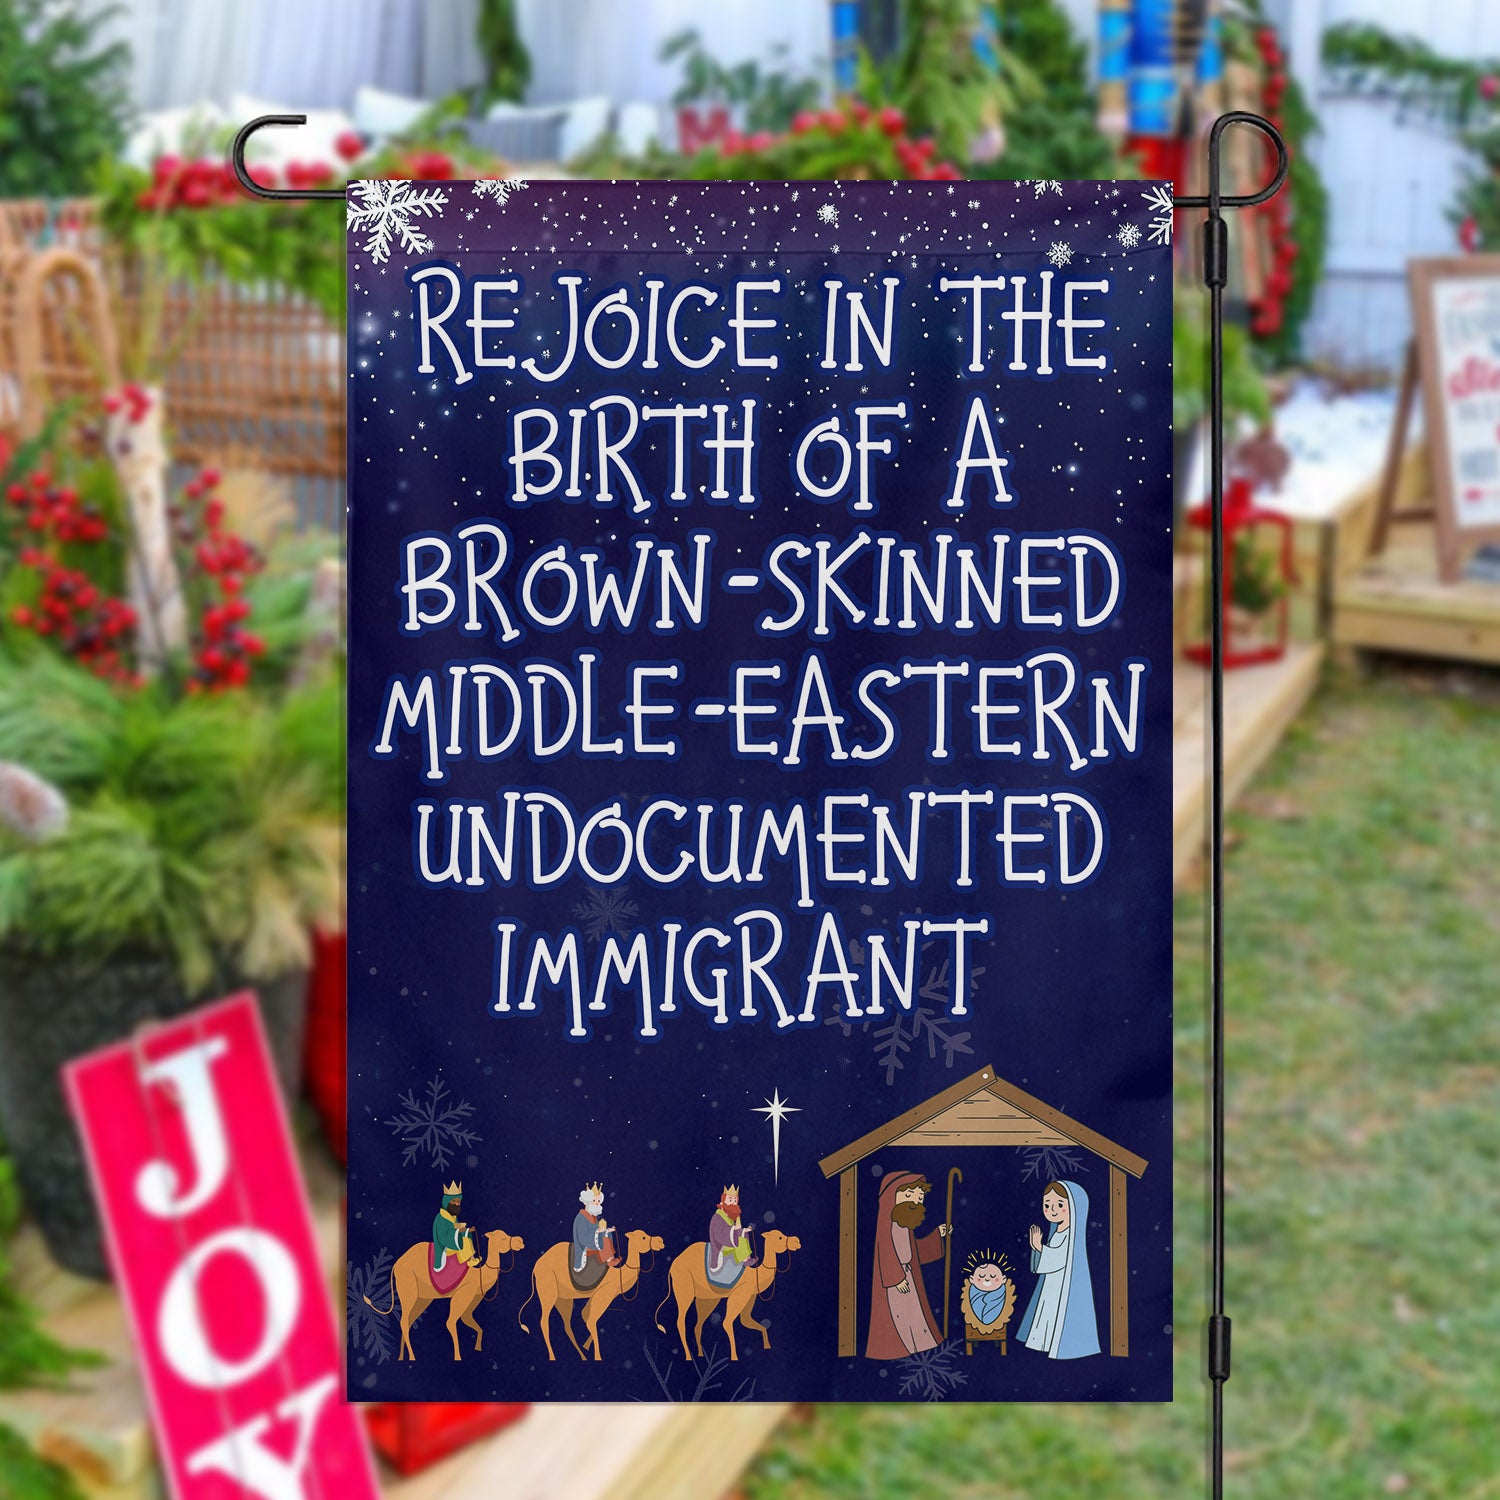 REJOICE IN THE
BIRTH OF A
BROWN-SKINNED
MIDDLE-EASTERN
UNDOCUMENTED
IMMIGRANT
JOY